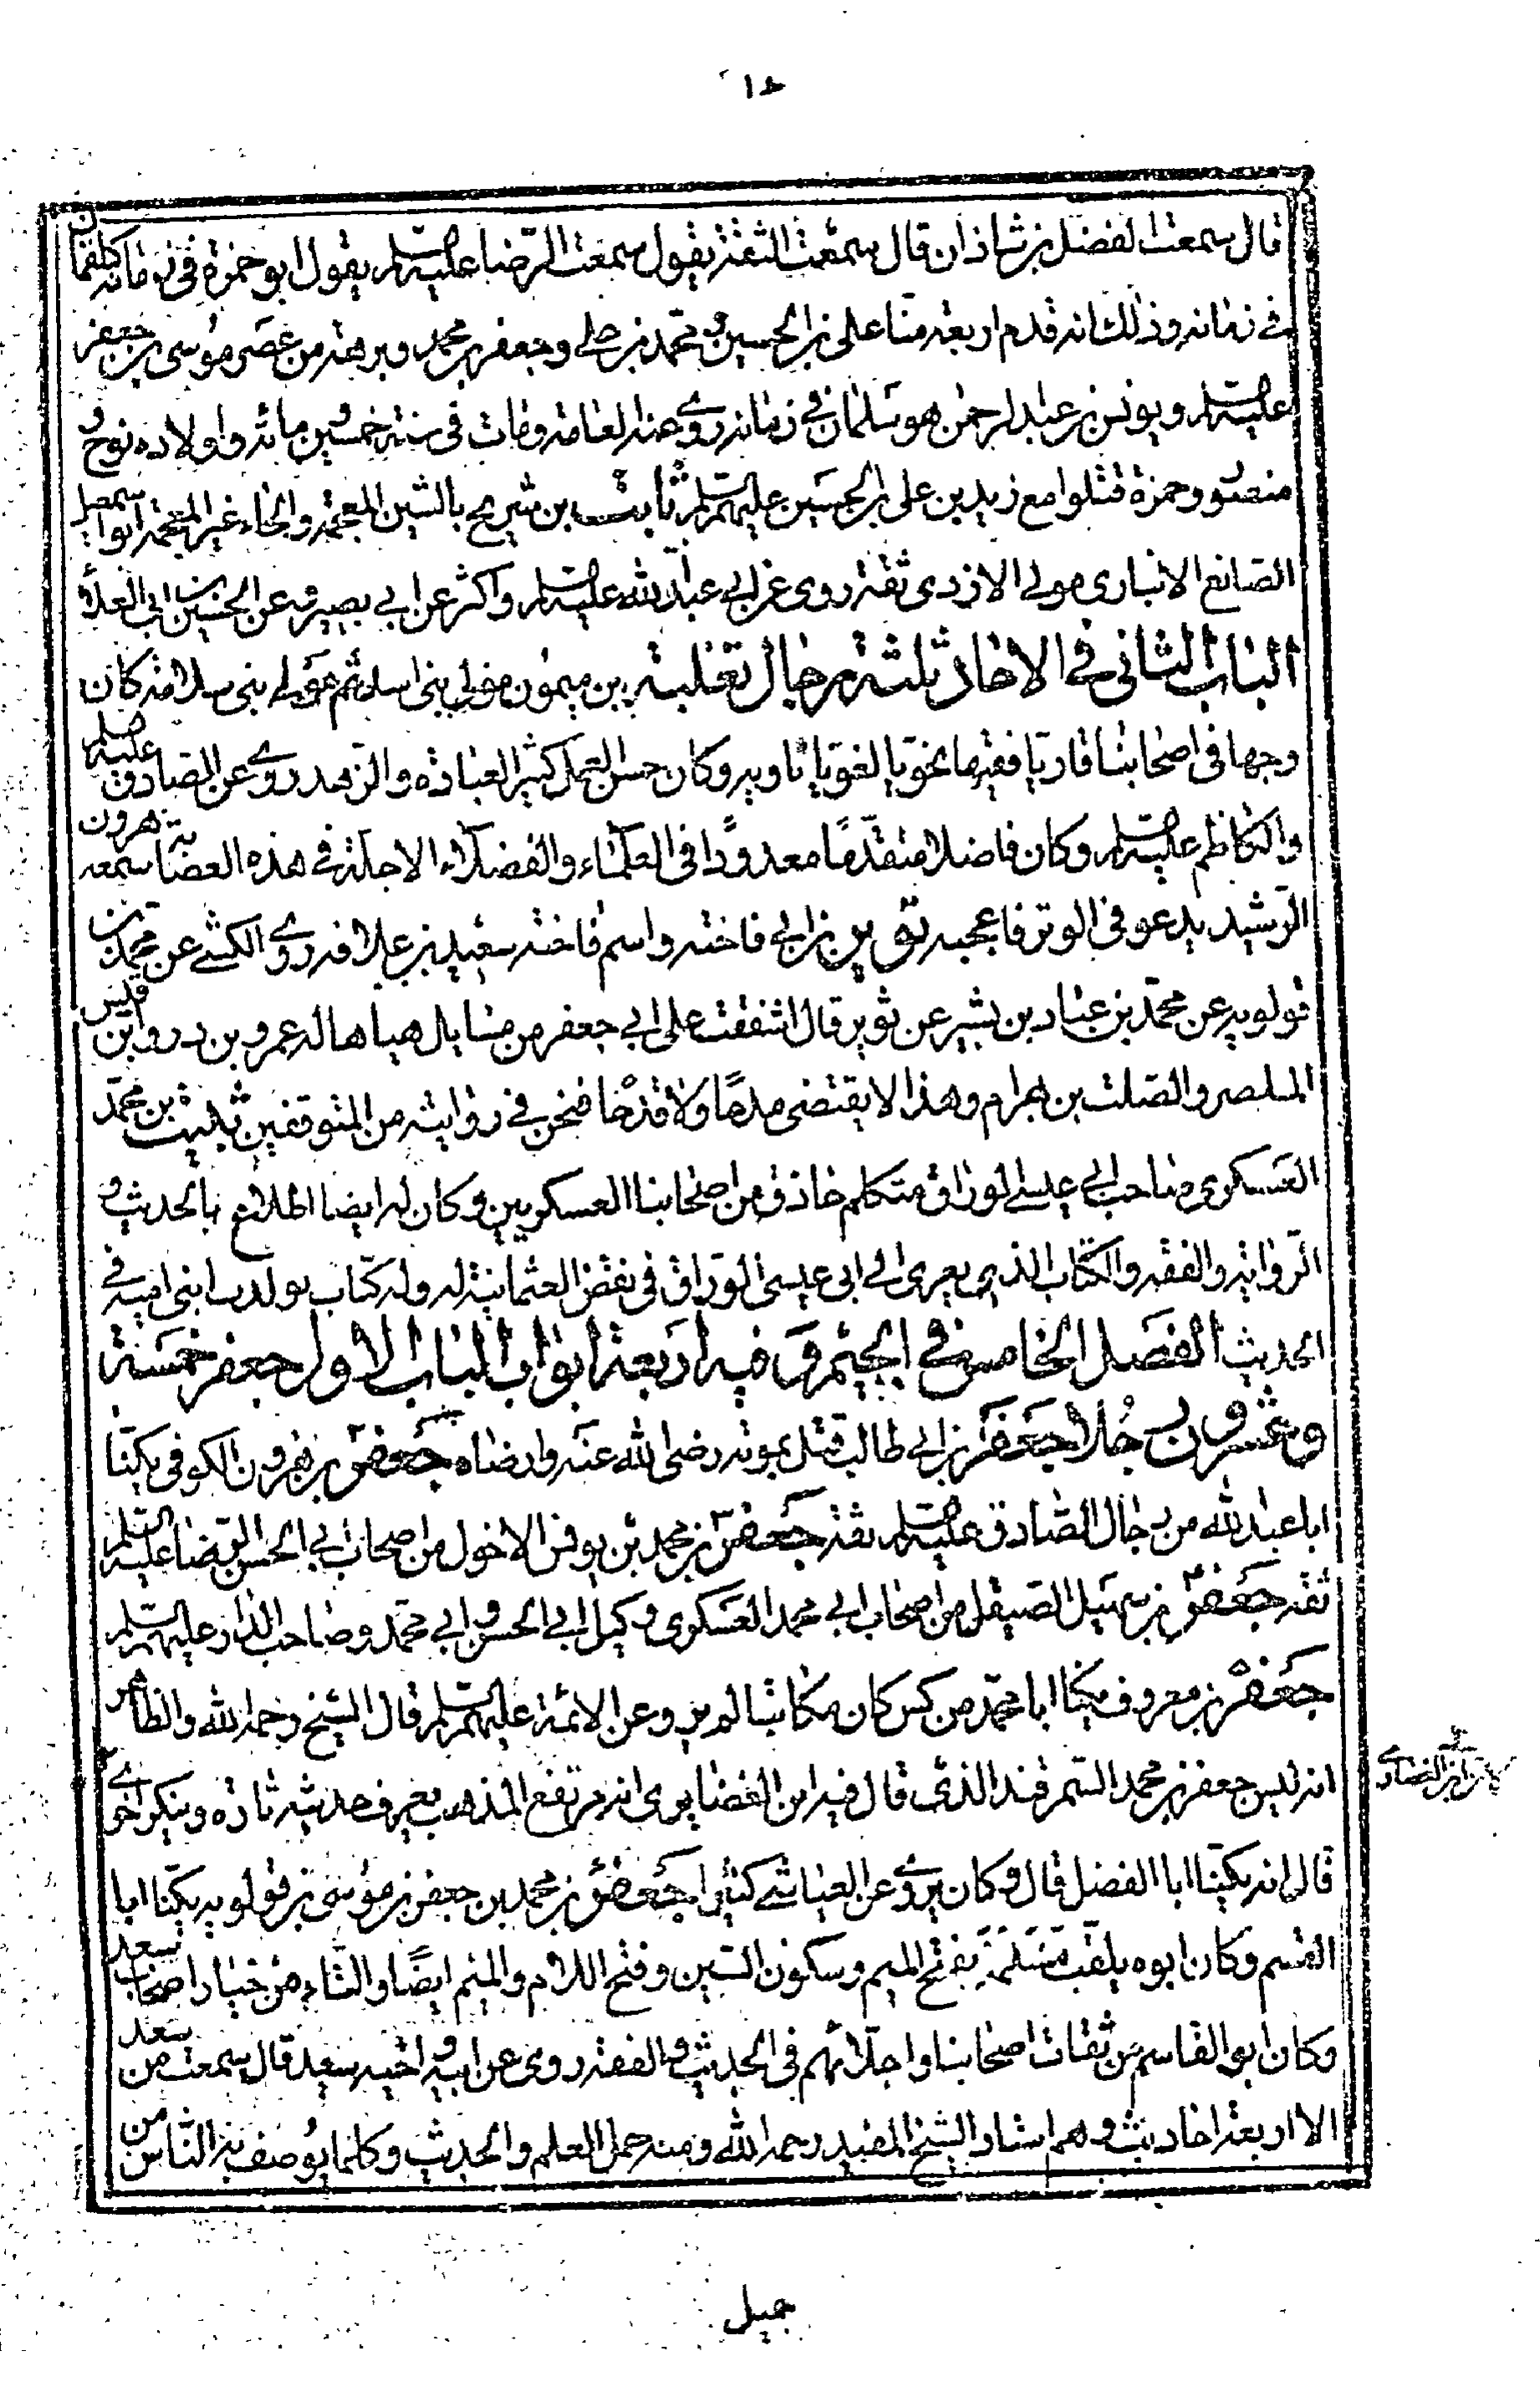 ١٥
قال سمعت الفضل بن شاذان قال سمعت الثقة يقول سمعت الرضا عليه السلم يقول ابو حمزة في زمانه كلقمان
في زمانه وذلك انه قدم اربعة منا علي بن الحسين و محمد بن علي وجعفر بن محمد وبرهة من عصر موسى بن جعفر
عليه السلم ويونس بن عبد الرحمن هو سلمان في زمانه روى عنه العامة ومات في سنة خمسين ومائة واولاده نوح و
منصور وحمزة قتلوا مع زيد بن علي بن الحسين عليهم السلم ثابت بن شريح بالشين المعجمة والحاء غير المعجمة ابو اسمعيل
الصائغ الانباري مولى الازدي ثقة روى عن ابي عبد الله عليه السلم واكثر عن ابي بصير وعن الحسين بن ابي العلا
الباب الثاني في الاحاد ثلثة رجال ثعلبة بن ميمون مولى بني اسد ثم مولى بني سلامة كان
وجها في اصحابنا قاريا فقيها نحويا لغويا راويه وكان حسن العمل كثير العبادة والزهد روى عن الصادق عليه السلم
والكاظم عليه السلم وكان فاضلا متقدما معدودا في العلماء والفضلاء الاجلة في هذه العصابة سمعه هرون
الرشيد يدعو في الوتر فاعجبه ثوير بن ابي فاخته واسم فاخته سعيد بن علاقه روى الكشي عن محمد بن
قولويه عن محمد بن عباد بن بشير عن ثوير قال اشفقت على ابي جعفر من مسايل هياها له عمرو بن ذر وابن قيس
الماصر والصلت بن بهرام وهذا لا يقتضي مدحا ولا قدحا فنحن في روايته من المتوقفين ثبيت بن محمد
العسكري صاحب ابي عيسى الوراق متكلم حاذق من اصحابنا العسكريين وكان له ايضا اطلاع بالحديث و
الرواية والفقه والكتاب الذي يعزى الى ابي عيسى الوراق في نقض العثمانية له وله كتاب تولدات بني امية في
الحديث الفصل الخامس في الجيم وفيه اربعة ابواب الباب الاول جعفر خمسة
وعشرون رجلا جعفر بن ابي طالب قتل بموته رضي الله عنه وارضاه جعفر بن هرون الكوفي يكنا
ابا عبد الله من رجال الصادق عليه السلم ثقة جعفر بن محمد بن يونس الاحول من اصحاب ابي الحسن الرضا عليه السلم
ثقة جعفر بن سهيل الصيقل من اصحاب ابي محمد العسكري وكيل ابي الحسن وابي محمد وصاحب الدار عليهم السلم
جعفر بن معروف يكنا ابا محمد من كس كان مكاتبا لدين وعن الائمة عليهم السلم قال الشيخ رحمه الله والظاهر
انه ليس جعفر بن محمد السمرقندي الذي قال فيه ابن الغضايري انه مرتفع المذهب يعرف حديثه تارة وينكر اخرى
قال انه يكنا ابا الفضل قال وكان يروي عن العياشي كثيرا جعفر بن محمد بن جعفر بن موسى بن قولويه يكنا ابا
القسم وكان ابوه يلقب مسلمة بفتح الميم وسكون السين وفتح اللام والميم ايضا والتاء من خيار اصحاب سعد
وكان ابو القاسم من ثقات اصحابنا واجلائهم في الحديث والفقه روى عن ابيه و اخيه سعيد قال سمعت من سعد
الا اربعة احاديث وهو استاد الشيخ المفيد رحمه الله ومنه حمل العلم والحديث وكلما يوصف به الناس من
جميل